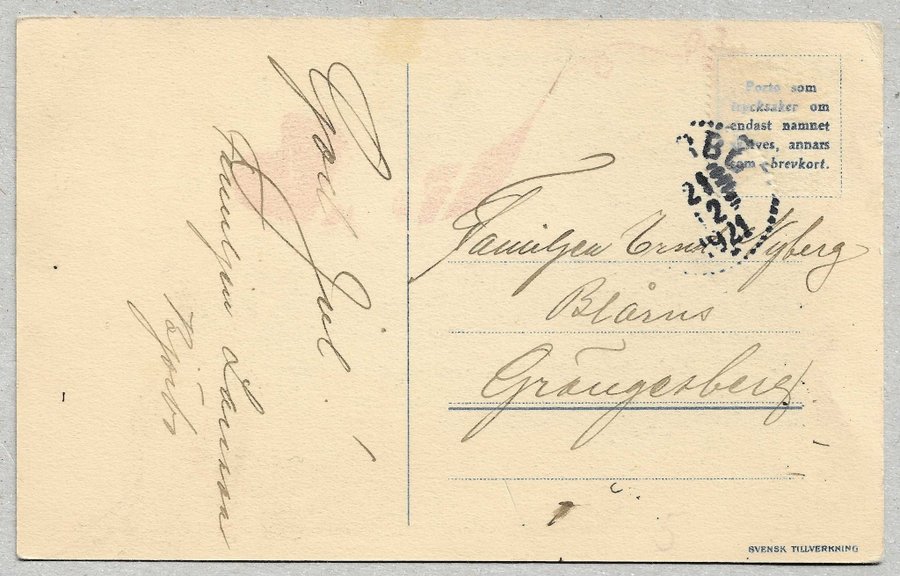 God Jul!
Familjen Larsson
Björbo
Porto som
trycksaker om
endast namnet
skrives, annars
som brevkort.
21
12
1921
Familjen Ernst Nyberg
Grängesberg
SVENSK TILLVERKNING